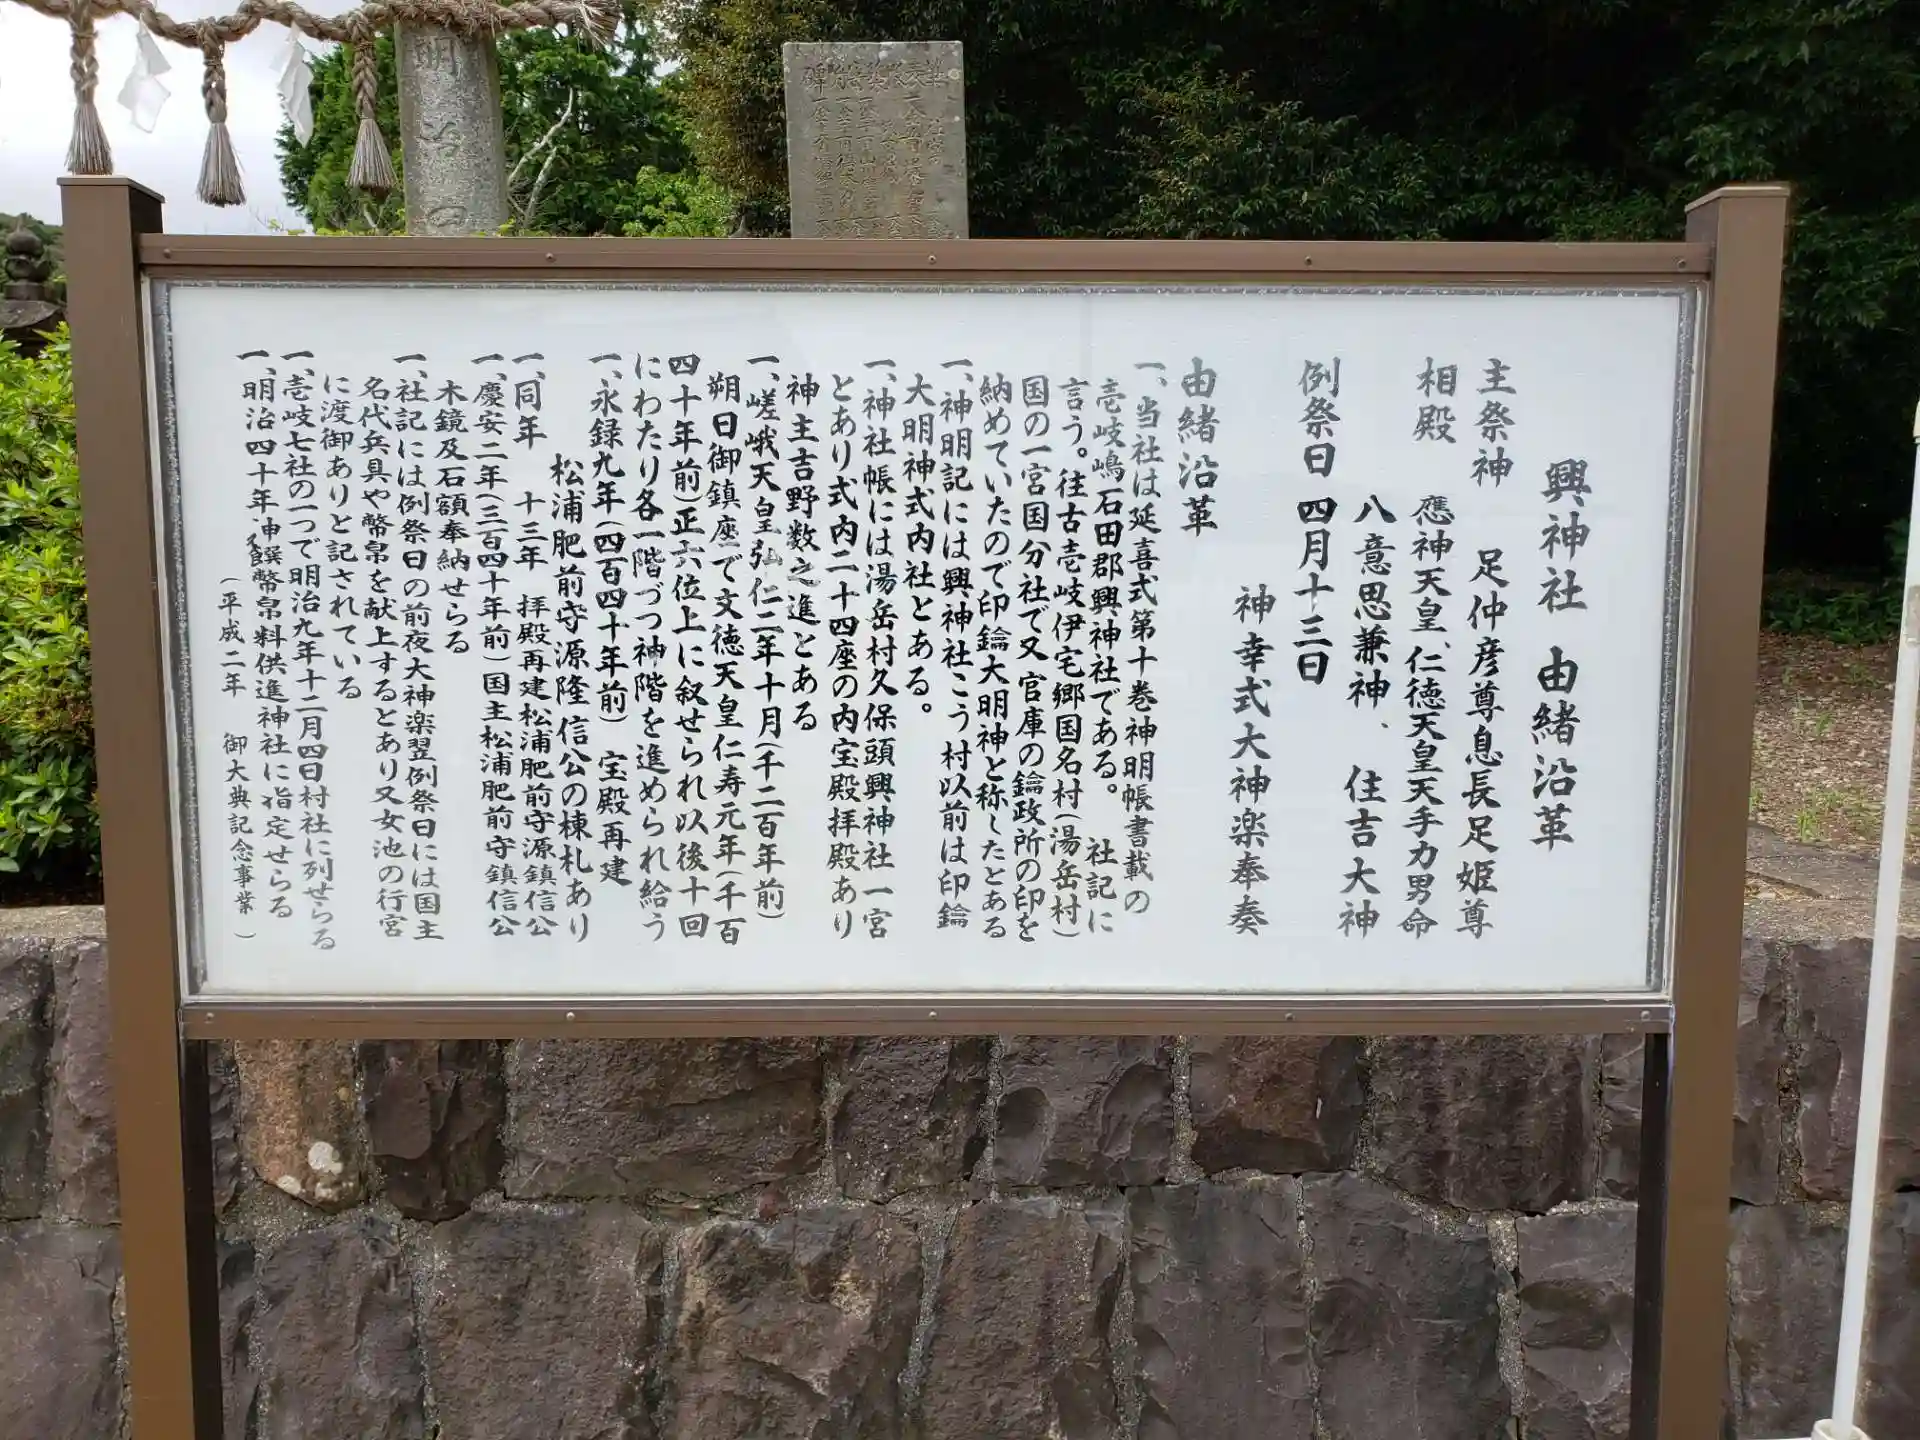 興神社 由緒沿革
主祭神 足仲彦尊息長足姫尊
相殿 應神天皇、仁徳天皇天手力男命
八意思兼神、 住吉大神
例祭日 四月十三日
神幸式大神楽奉奏
由緒沿革
一、当社は延喜式第十巻神明帳書載の
壱岐嶋石田郡興神社である。 社記に
言う。往古壱岐伊宅郷国名村(湯岳村)
国の一宮国分社で又官庫の鑰政所の印を
納めていたので印鑰大明神と称したとある
一、神明記には興神社こう村以前は印鑰
大明神式内社とある。
一、神社帳には湯岳村久保頭興神社一宮
とあり式内二十四座の内宝殿拝殿あり
神主吉野数之進とある
一、嵯峨天皇弘仁二年十月(千二百年前)
朔日御鎮座で文徳天皇仁寿元年(千百
四十年前)正六位上に叙せられ以後十回
にわたり各一階づつ神階を進められ給う
一、永録九年(四百四十年前) 宝殿再建
松浦肥前守源隆信公の棟札あり
一、同年 十三年 拝殿再建松浦肥前守源鎮信公
一、慶安二年(三百四十年前)国主松浦肥前守鎮信公
木鏡及石額奉納せらる
一、社記には例祭日の前夜大神楽翌例祭日には国主
名代兵具や幣帛を献上するとあり又女池の行宮
に渡御ありと記されている
一、壱岐七社の一つで明治九年十二月四日村社に列せらる
一、明治四十年神饌幣帛料供進神社に指定せらる
(平成二年 御大典記念事業)